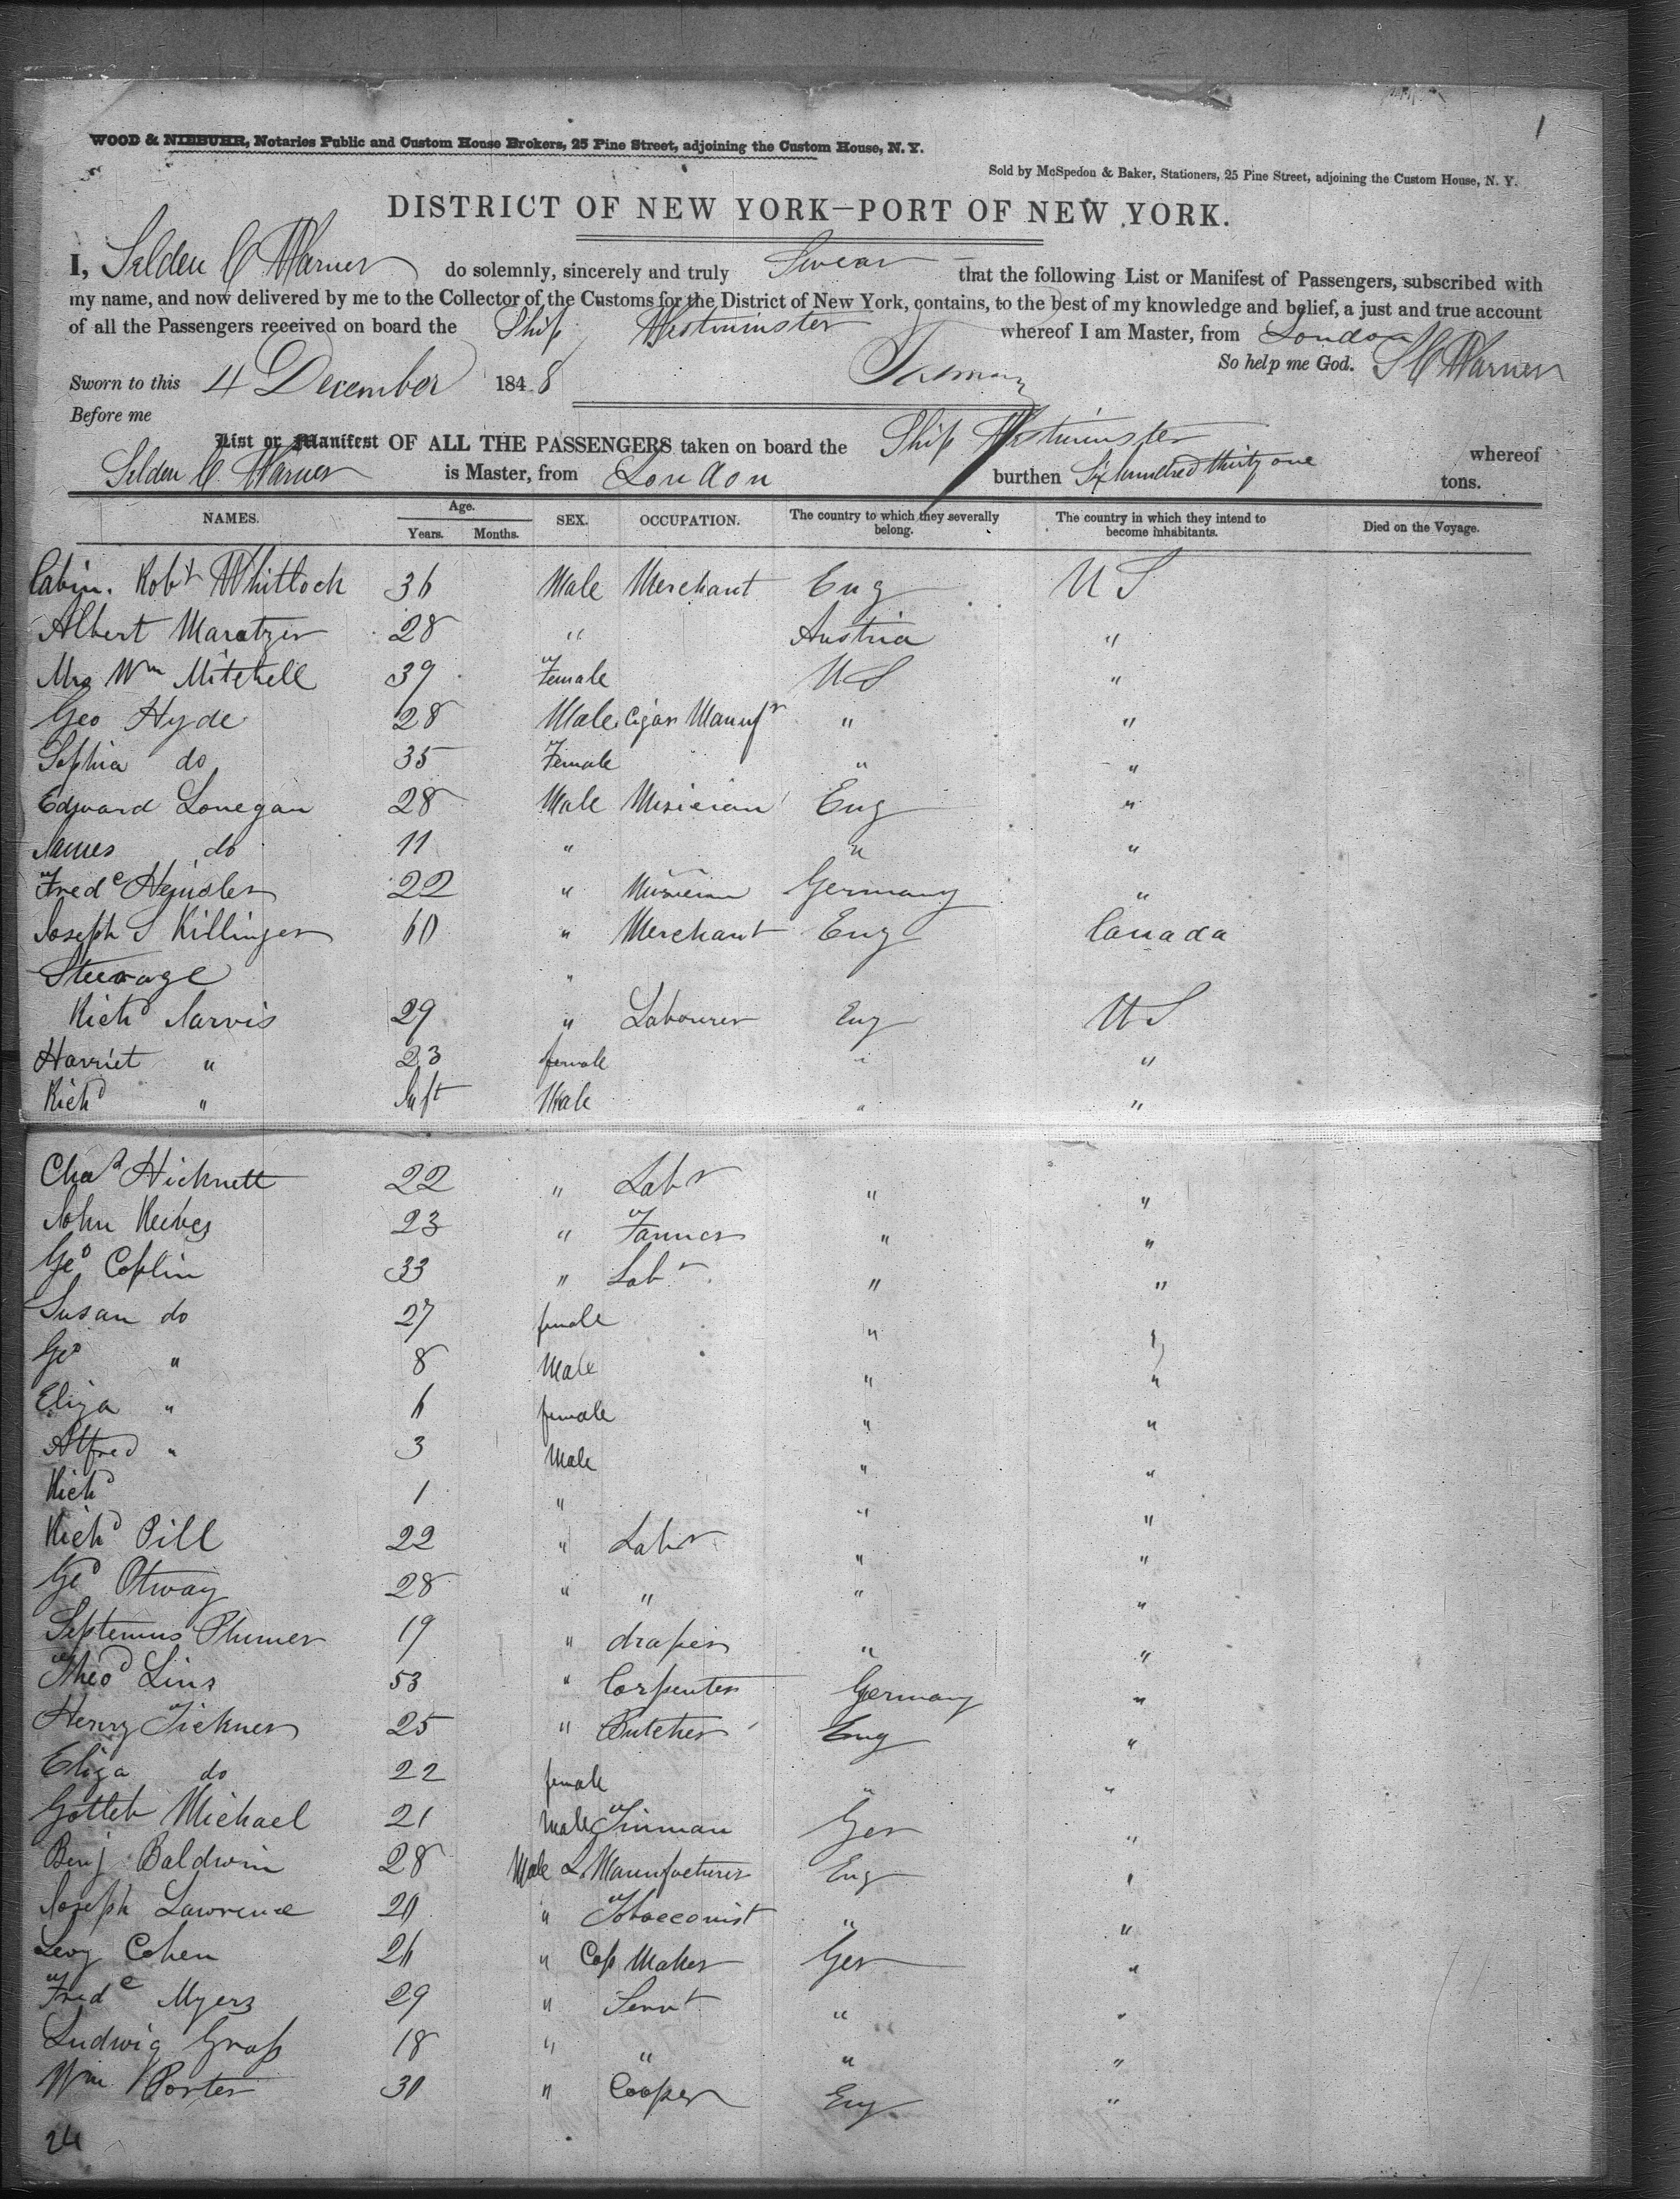 1
WOOD & NIEBUHR, Notaries Public and Custom House Brokers, 25 Pine Street, adjoining the Custom House, N. Y.
Sold by McSpedon & Baker, Stationers, 25 Pine Street, adjoining the Custom House, N. Y.
DISTRICT OF NEW YORK—PORT OF NEW YORK.
I, Selden C Warner do solemnly, sincerely and truly Swear that the following List or Manifest of Passengers, subscribed with
my name, and now delivered by me to the Collector of the Customs for the District of New York, contains, to the best of my knowledge and belief, a just and true account
of all the Passengers received on board the Ship Westminster whereof I am Master, from London
So help me God. S C Warner
Sworn to this 4 December 1848
Before me
List or Manifest OF ALL THE PASSENGERS taken on board the Ship Westminster whereof
Selden C. Warner is Master, from London burthen Six hundred thirty one tons.
NAMES. Age. Years. Months. SEX. OCCUPATION. The country to which they severally belong. The country in which they intend to become inhabitants. Died on the Voyage.
Cabin. Robt Whitlock 36 Male Merchant Eng US
Albert Maretzer 28 " Austria "
Mrs Wm Mitchell 39 Female US "
Geo Hyde 28 Male Cigar Manufr " "
Sophia do 35 Female " "
Edward Lonegan 28 Male Musician Eng "
James do 11 " " "
Fredc Hensler 22 " Musician Germany "
Joseph S Killinger 60 " Merchant Eng Canada
Steerage "
Richd Jarvis 29 " Labourer Eng US
Harriet " 23 female " "
Richd " Inft Male " "
Chas Hicknett 22 " Labr " "
John Reeves 23 " Farmer " "
Geo Coplin 33 " Labr " "
Susan do 27 female " "
Geo " 8 Male " "
Eliza " 6 female " "
Alfred " 3 Male " "
Richd 1 " " "
Richd Pill 22 " Labr " "
Geo Otway 28 " " " "
Septemus Plumer 19 " draper " "
Theod Lins 53 " Carpenter Germany "
Henry Tickner 25 " Butcher Eng "
Eliza do 22 female " "
Gottleb Michael 21 Male Tinman Ger "
Benj Baldwin 28 Male L. Manufacturer Eng "
Joseph Lawrence 20 " Tobacconist " "
Levy Cohen 26 " Cap Maker Ger "
Fredc Myers 29 " Servt " "
Ludwig Grass 18 " " " "
Wm Porter 30 " Cooper Eng "
24